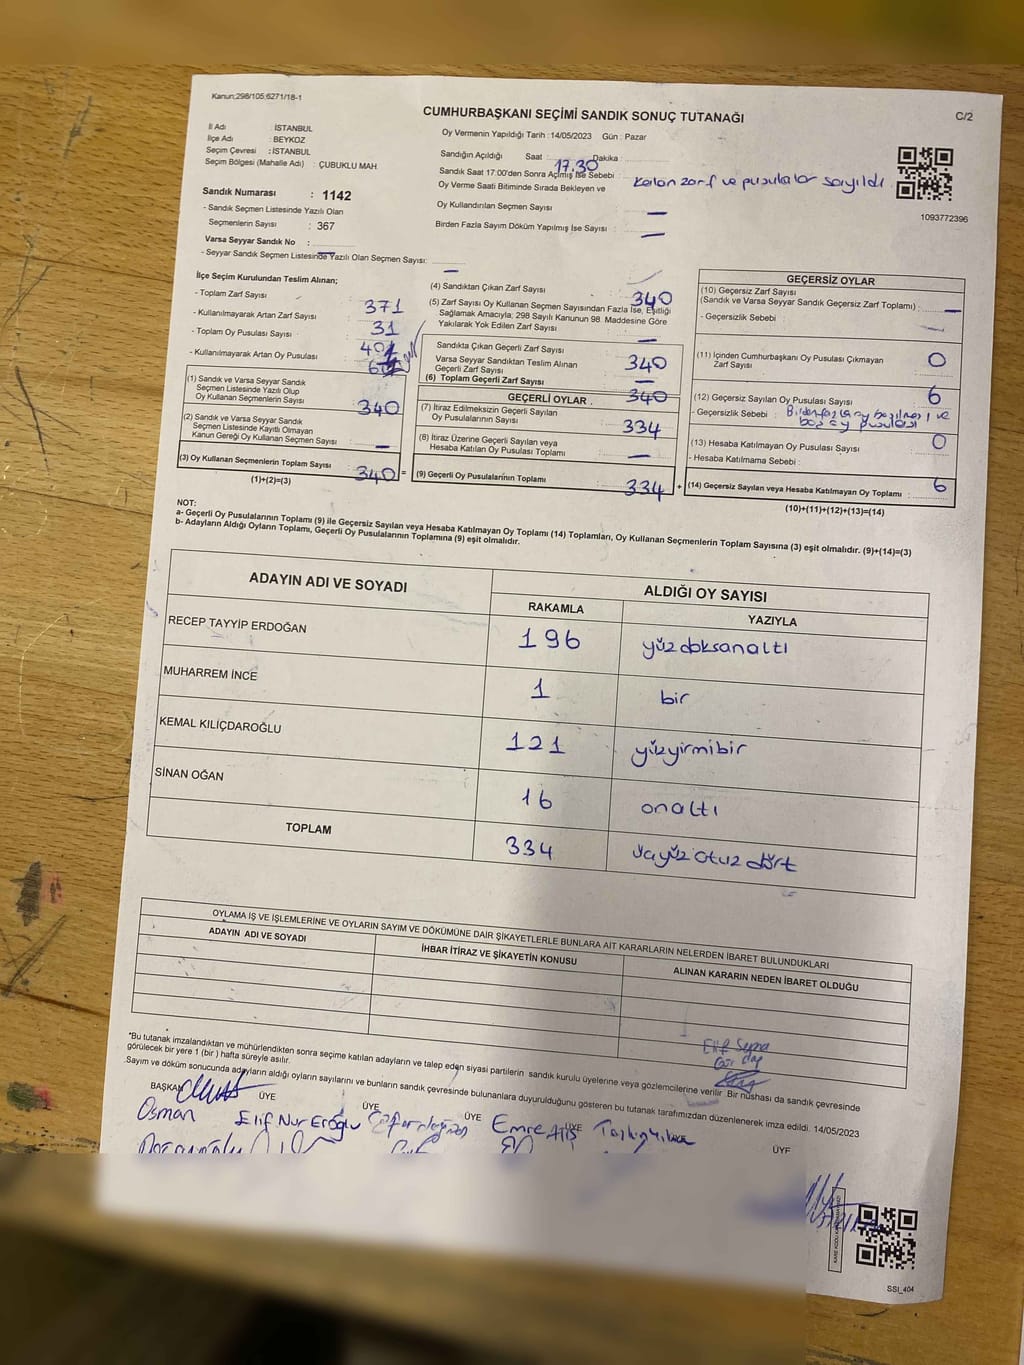 Kanun;298/105;6271/18-1
CUMHURBAŞKANI SEÇİMİ SANDIK SONUÇ TUTANAĞI
C/2
İl Adı : İSTANBUL
İlçe Adı : BEYKOZ
Seçim Çevresi : İSTANBUL
Seçim Bölgesi (Mahalle Adı) : ÇUBUKLU MAH.
Sandık Numarası : 1142
- Sandık Seçmen Listesinde Yazılı Olan
Seçmenlerin Sayısı : 367
Varsa Seyyar Sandık No :
- Seyyar Sandık Seçmen Listesinde Yazılı Olan Seçmen Sayısı: —
Oy Vermenin Yapıldığı Tarih :14/05/2023 Gün : Pazar
Sandığın Açıldığı Saat : 17.30 Dakika :
Sandık Saat 17:00'den Sonra Açılmış İse Sebebi : Kalan zarf ve pusulalar sayıldı
Oy Verme Saati Bitiminde Sırada Bekleyen ve
Oy Kullandırılan Seçmen Sayısı : —
Birden Fazla Sayım Döküm Yapılmış İse Sayısı : —
1093772396
İlçe Seçim Kurulundan Teslim Alınan;
- Toplam Zarf Sayısı : 371
- Kullanılmayarak Artan Zarf Sayısı : 31
- Toplam Oy Pusulası Sayısı :
- Kullanılmayarak Artan Oy Pusulası :
(1) Sandık ve Varsa Seyyar Sandık
Seçmen Listesinde Yazılı Olup
Oy Kullanan Seçmenlerin Sayısı : 340
(2) Sandık ve Varsa Seyyar Sandık
Seçmen Listesinde Kayıtlı Olmayan
Kanun Gereği Oy Kullanan Seçmen Sayısı : —
(3) Oy Kullanan Seçmenlerin Toplam Sayısı : 340 =
(1)+(2)=(3)
(4) Sandıktan Çıkan Zarf Sayısı : 340
(5) Zarf Sayısı Oy Kullanan Seçmen Sayısından Fazla İse, Eşitliği
Sağlamak Amacıyla; 298 Sayılı Kanunun 98. Maddesine Göre
Yakılarak Yok Edilen Zarf Sayısı : —
Sandıkta Çıkan Geçerli Zarf Sayısı : 340
Varsa Seyyar Sandıktan Teslim Alınan
Geçerli Zarf Sayısı : —
(6) Toplam Geçerli Zarf Sayısı : 340
GEÇERLİ OYLAR
(7) İtiraz Edilmeksizin Geçerli Sayılan
Oy Pusulalarının Sayısı : 334
(8) İtiraz Üzerine Geçerli Sayılan veya
Hesaba Katılan Oy Pusulası Toplamı : —
(9) Geçerli Oy Pusulalarının Toplamı : 334 +
GEÇERSİZ OYLAR
(10) Geçersiz Zarf Sayısı
(Sandık ve Varsa Seyyar Sandık Geçersiz Zarf Toplamı) : —
- Geçersizlik Sebebi : —
(11) İçinden Cumhurbaşkanı Oy Pusulası Çıkmayan
Zarf Sayısı : 0
(12) Geçersiz Sayılan Oy Pusulası Sayısı : 6
- Geçersizlik Sebebi : Birden fazla oy basılması ve
boş oy pusulası
(13) Hesaba Katılmayan Oy Pusulası Sayısı : 0
- Hesaba Katılmama Sebebi :
(14) Geçersiz Sayılan veya Hesaba Katılmayan Oy Toplamı : 6
(10)+(11)+(12)+(13)=(14)
NOT:
a- Geçerli Oy Pusulalarının Toplamı (9) ile Geçersiz Sayılan veya Hesaba Katılmayan Oy Toplamı (14) Toplamları, Oy Kullanan Seçmenlerin Toplam Sayısına (3) eşit olmalıdır. (9)+(14)=(3)
b- Adayların Aldığı Oyların Toplamı, Geçerli Oy Pusulalarının Toplamına (9) eşit olmalıdır.
ADAYIN ADI VE SOYADI ALDIĞI OY SAYISI
RAKAMLA YAZIYLA
RECEP TAYYİP ERDOĞAN 196 yüzdoksanaltı
MUHARREM İNCE 1 bir
KEMAL KILIÇDAROĞLU 121 yüzyirmibir
SİNAN OĞAN 16 onaltı
TOPLAM 334 üçyüz otuz dört
OYLAMA İŞ VE İŞLEMLERİNE VE OYLARIN SAYIM VE DÖKÜMÜNE DAİR ŞİKAYETLERLE BUNLARA AİT KARARLARIN NELERDEN İBARET BULUNDUKLARI
ADAYIN ADI VE SOYADI İHBAR İTİRAZ VE ŞİKAYETİN KONUSU ALINAN KARARIN NEDEN İBARET OLDUĞU
*Bu tutanak imzalandıktan ve mühürlendikten sonra seçime katılan adayların ve talep eden siyasi partilerin sandık kurulu üyelerine veya gözlemcilerine verilir. Bir nüshası da sandık çevresinde
görülecek bir yere 1 (bir) hafta süreyle asılır.
Sayım ve döküm sonucunda adayların aldığı oyların sayılarını ve bunların sandık çevresinde bulunanlara duyurulduğunu gösteren bu tutanak tarafımızdan düzenlenerek imza edildi. 14/05/2023
BAŞKAN ÜYE ÜYE ÜYE ÜYE ÜYE
Osman Elif Nur Eroğlu Emre
SSI_404